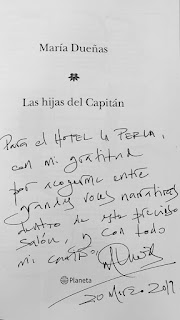 María Dueñas
Las hijas del Capitán
Para el HOTEL LA PERLA,
con mi gratitud
por acogerme entre
grandes voces narrativas
dentro de este precioso
salón, y con todo
mi cariño.
MDueñas
Planeta
30 Marzo 2019